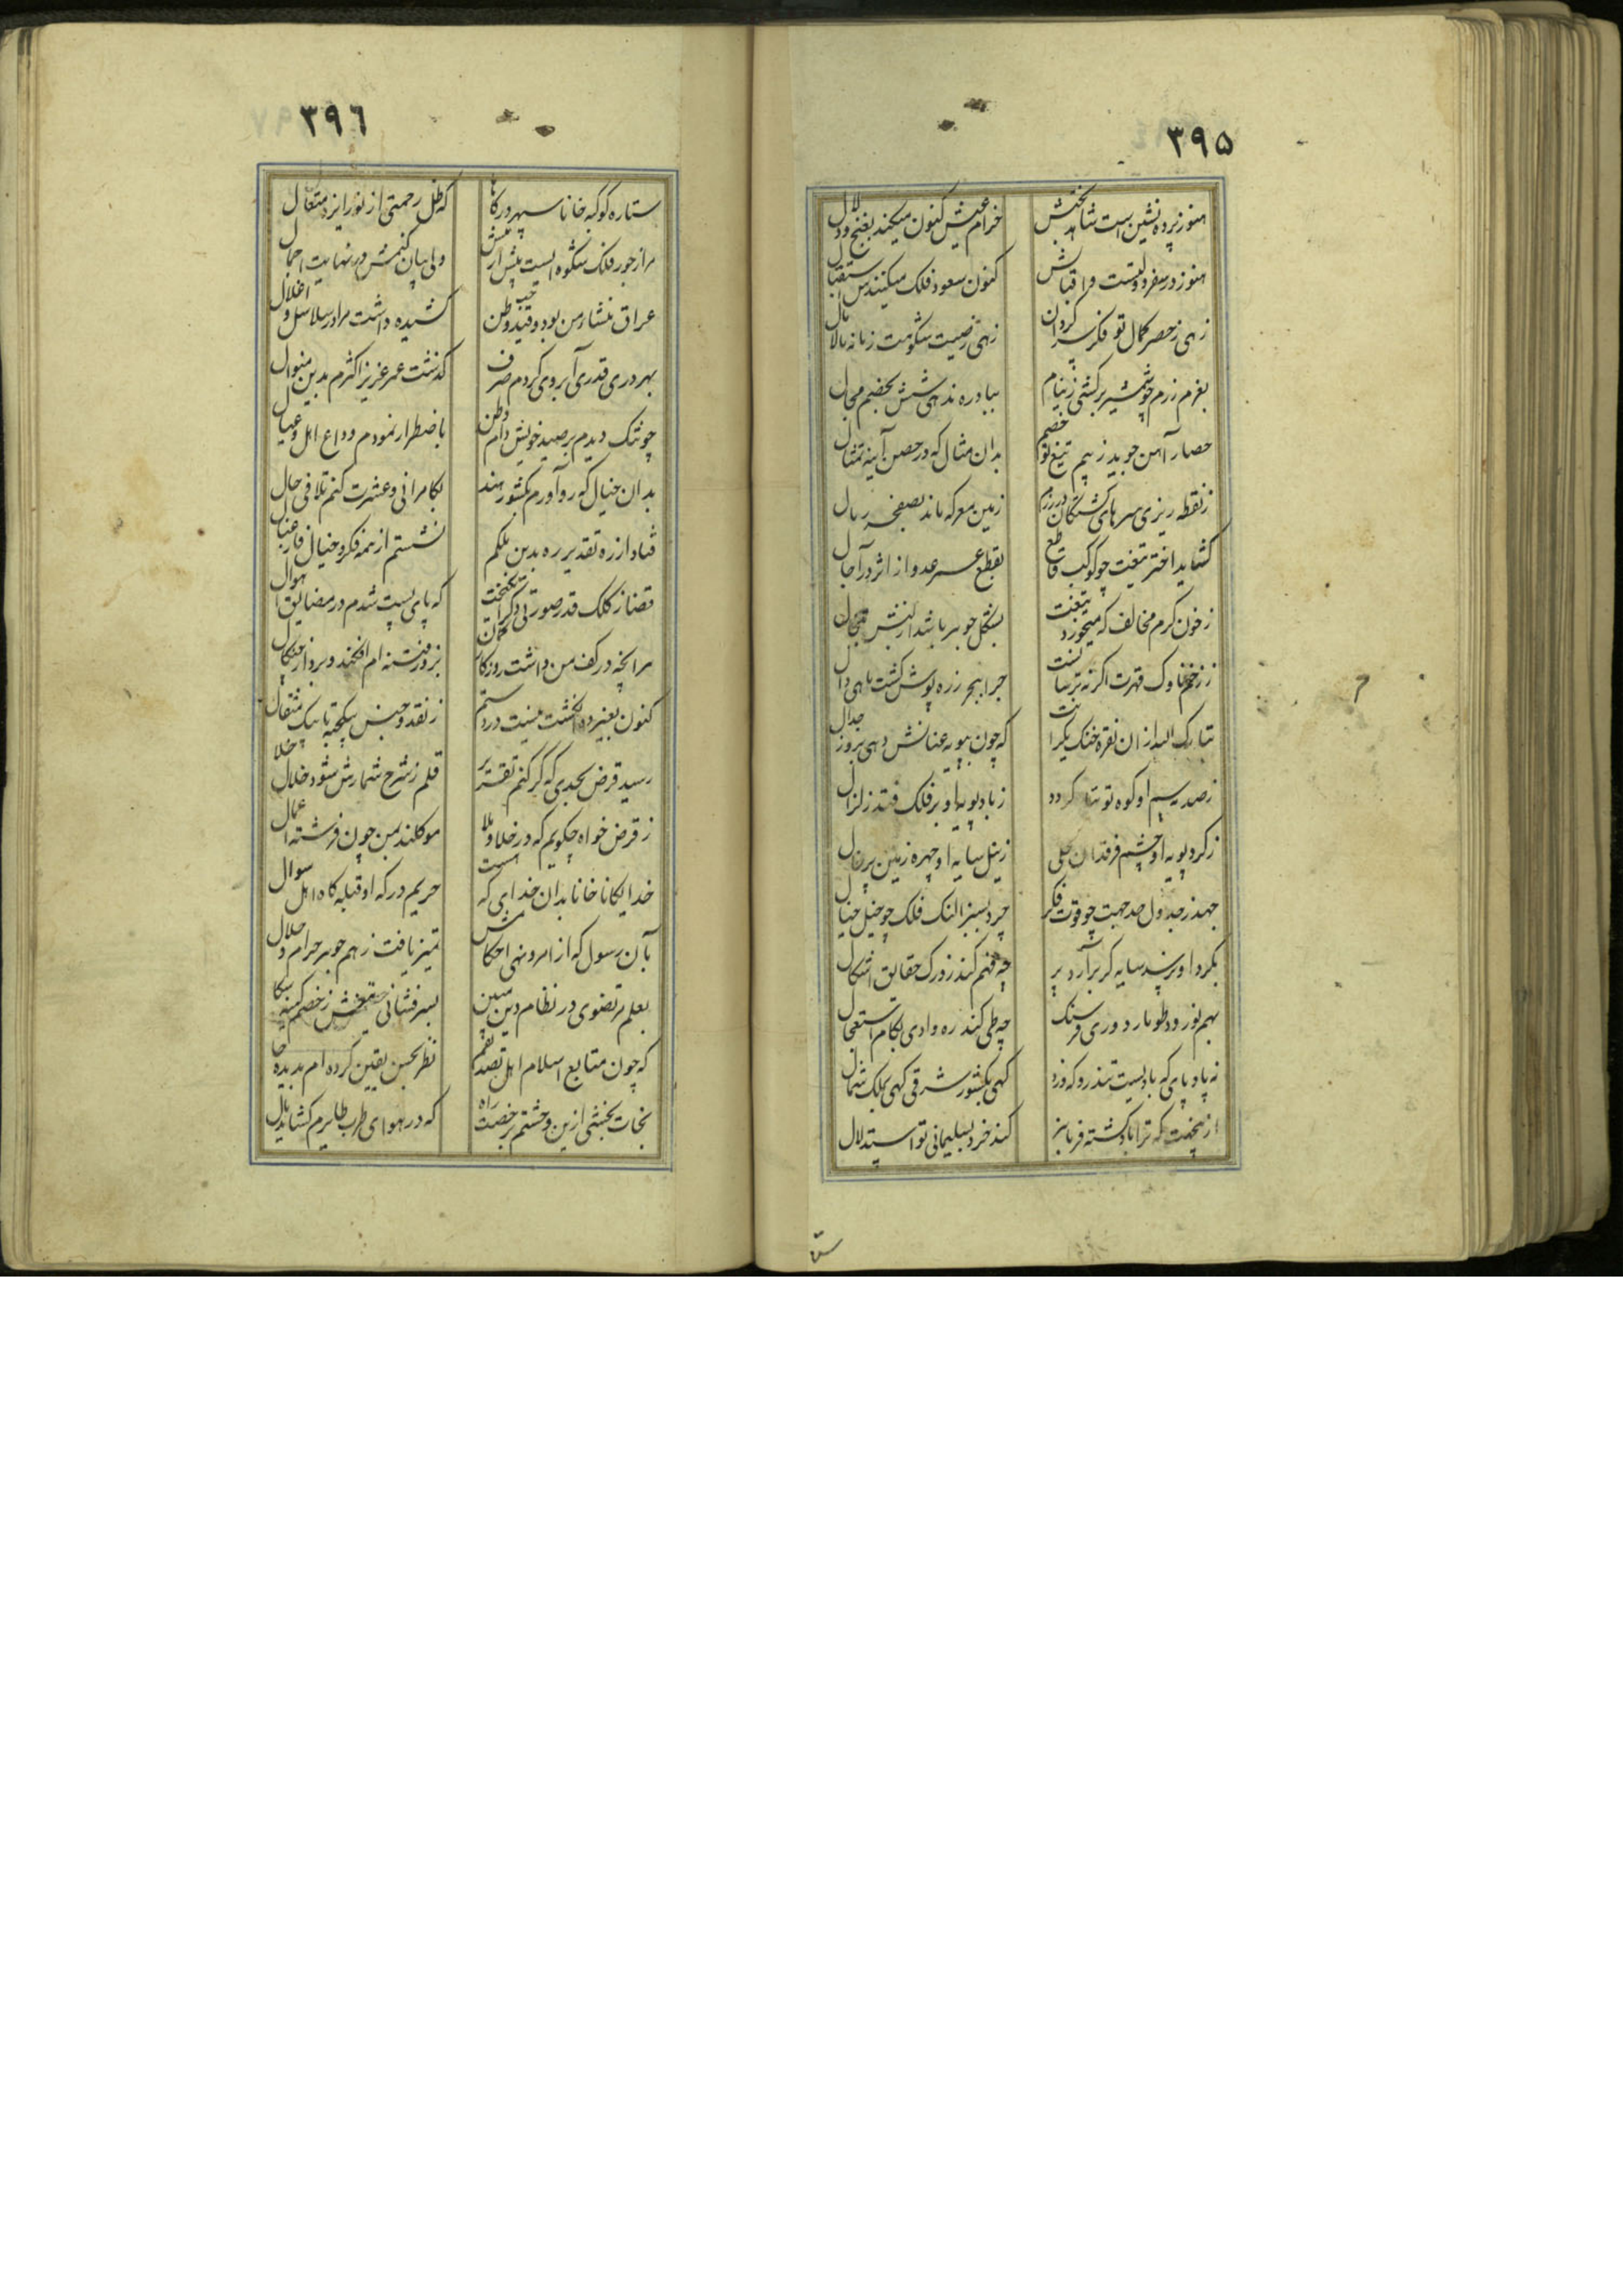 ۳۹۵
هنوز پرده نشین است شاهد بختش
خرام عیش کنون میکند بغنج و دلال
هنوز در سفر دولتست و اقبالش
کنون سعود فلک میکنندش استقبال
زهی ز حصر کمال تو فکر سرگردان
زهی ز صیت شکوهت زمانه مالامال
بعزم رزم چو شمشیر برکشی ز نیام
ببادره ندهی شش بخصم مجال
حصار آهن جوید ز بیم تیغ تو خصم
بدان مثال که در حصن آینه تمثال
ز نقطه ریزی سرهای کشتگان در رزم
زمین معرکه ماند بصفحه رمال
کشاید اختر تیغت چو کوکب قاطع
بقطع عمر عدو از اثر در آجال
ز خون گرم مخالف که میخورد تیغت
بشکل جوهر باشد
ز زخم ناوک قهرت اگر نه ترسانست
چرا ببحر زره پوش گشت ماهی دال
تبارک الله از ان نقره خنگ یکرانت
که چون بپویه عنانش دهی بروز جدال
ز صد سم او کوه توتیا گردد
ز باد پویه او بر فلک فتد زلزال
ز گرد پویه او چشم فرقدان کحلی
ز نیل سایه او چهره زمین پرخال
جهد ز جدول صد جهت چو قوت فکر
چرد بسبز النگ فلک چو خیل خیال
بگرد او نرسد سایه گر برآرد پر
چه فهم کند ز ورک حقایق اشکال
بهم نوردد طومار دوری فرسنگ
چه طی کند ره وادی بگام استعجال
نه پا و پای که بادیست تندرو که رود
گهی بکشور شرقی گهی بملک شمال
ازینجهت که ترا باد گشته فرمانبر
کند خرد بسلیمانی تو استدلال
۳۹٦
ستاره کوکبه خانا سپهر درگاها
که ظل رحمتی از نور ایزد متعال
مرا ز جور فلک شکوه ایست پیش از پیش
ولی بیان کنمش در نهایت اجمال
عراق منشاء من بود و قید حب وطن
کشیده داشت مرا در سلاسل و اغلال
بهر دری قدری آبروی کردم صرف
گذشت عمر عزیز اکثرم بدین منوال
چو تنگ دیدم بر صید خویش دام وطن
باضطرار نمودم وداع اهل و عیال
بدان خیال که رو آورم بکشور هند
بکامرانی و عشرت کنم تلافی حال
فتاد از ره تقدیر ره بدین ملکم
نشستم از همه فکر و خیال فارغبال
قضا ز کلک قدر صورتی دگر انگیخت
که پای بست شدم در مضایق اهوال
مرا نچه در کف من داشت روزگار
بزور فتنه ام افکند و برد از چنگال
کنون بغیر ده انگشت نیست در دستم
ز نقد و جنس سکجته تا بیک مثقال
رسید قرض بحدی که گر کنم تقریر
قلم ز شرح شمارش شود خلال خلال
ز قرض خواه چگویم که در خلا و ملا
موکلند بمن چون فرشته اعمال
خدایگانا خانا بدان خدای که هست
حریم درگه او قبله گاه اهل سوال
بآن رسول که از امر و نهی احکامش
تمیز یافت ز هم جوهر حرام و حلال
بعلم مرتضوی در نظام دین مبین
بسر فشانی تیغش ز خصم کینه سگال
که چون متابع اسلام اهل تصدیقم
نظر بحسن یقین کرده ام بدیده حال
نجات بخشی ازین وحشتم برخصت راه
که در هوای طرب طایرم گشاید بال